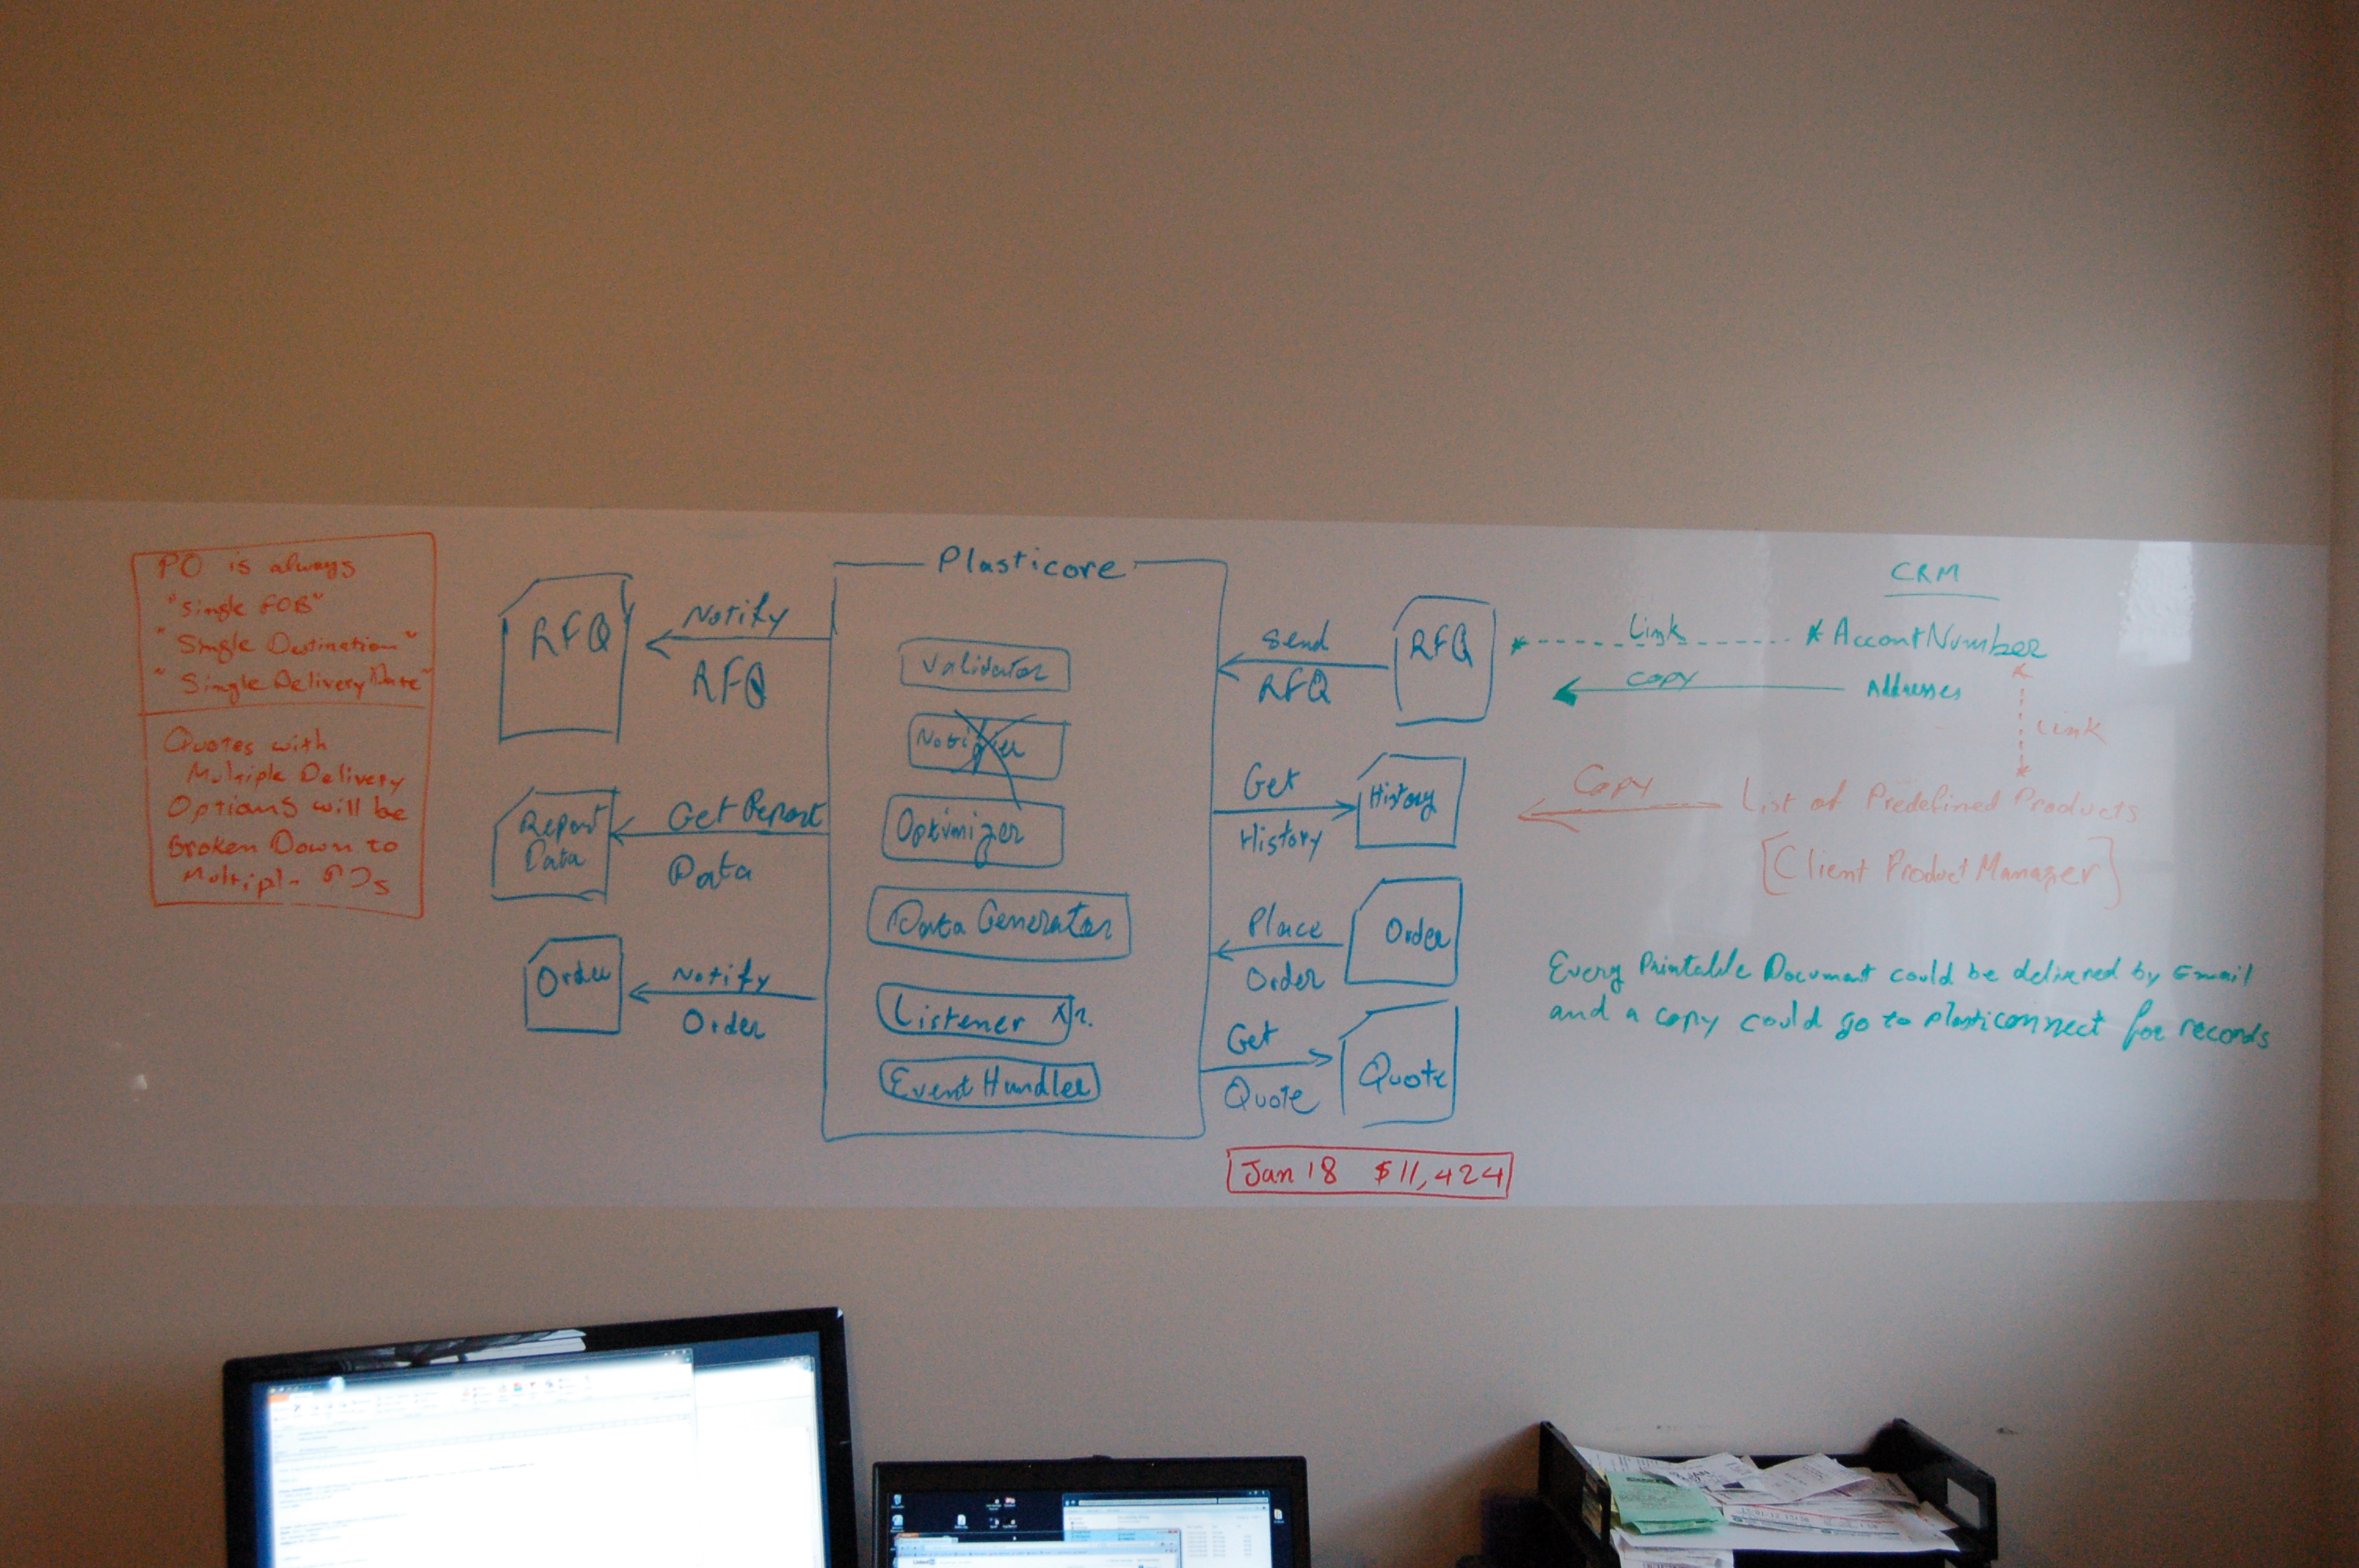 PO is always
"Single FOB"
"Single Destination"
"Single Delivery Date"
Quotes with
Multiple Delivery
Options will be
Broken Down to
Multiple POs
RFQ
Notify
RFQ
Report
Data
Get Report
Data
Order
Notify
Order
Plasticore
Validator
Notifier
Optimizer
Data Generator
Listener
Event Handler
Send
RFQ
RFQ
Get
History
History
Place
Order
Order
Get
Quote
Quote
Jan 18 $11,424
CRM
Link
* AccontNumber
Copy
Addresses
Link
Copy
List of Predefined Products
[Client Product Manager]
Every Printable Document could be delivered by Email
and a copy could go to plasticonnect for records